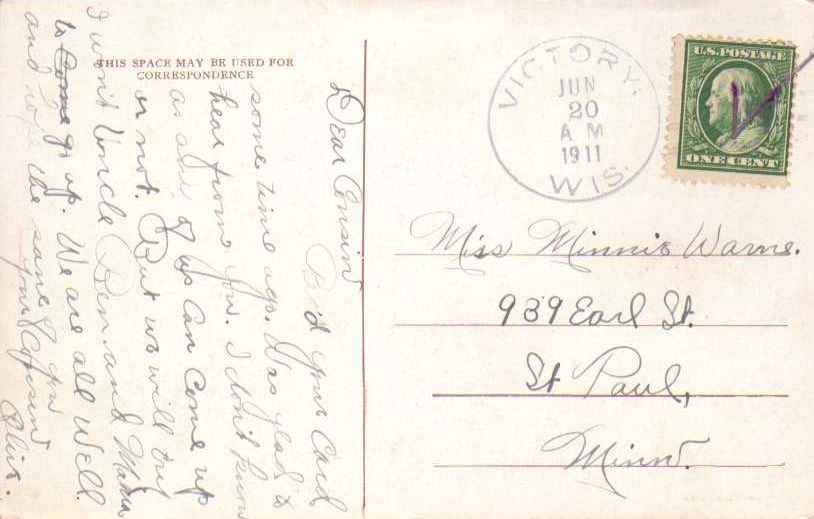 THIS SPACE MAY BE USED FOR
CORRESPONDENCE
Dear Cousin
Rec'd your Card
some time ago. Was glad to
hear from you. I don't know
as any of us Can Come up
or not. But we will try
I want Uncle Ben and Mama
to Come go up. We are all well
and hope the same of you
your Cousin
VICTORY,
JUN
20
A M
1911
WIS.
U.S. POSTAGE
ONE CENT
Miss Minnie Warne.
939 Earl St.
St Paul,
Minn.